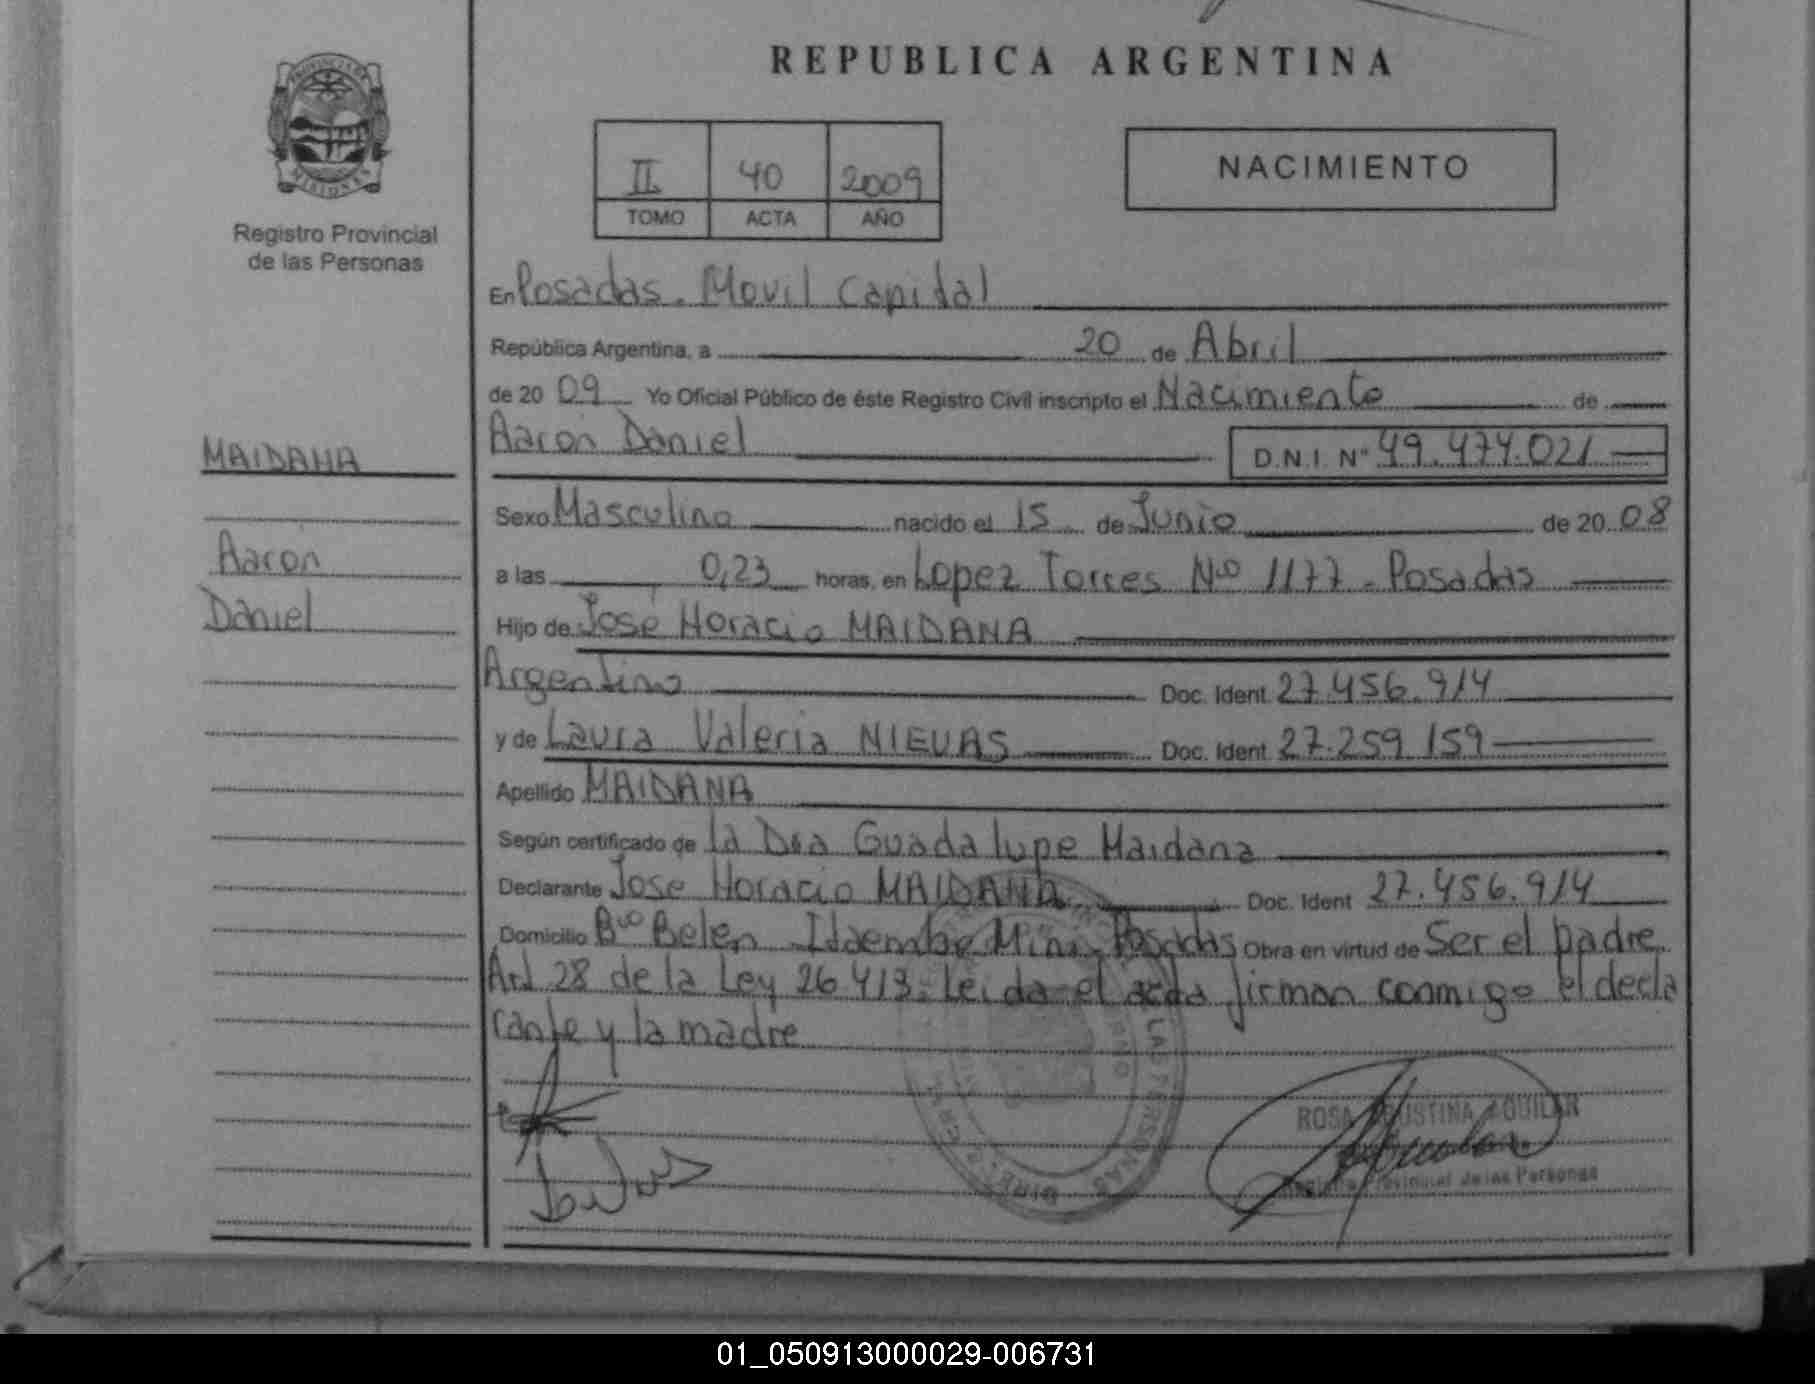 REPUBLICA ARGENTINA
PROVINCIA DE
MISIONES
Registro Provincial
de las Personas
II 40 2009
TOMO ACTA AÑO
NACIMIENTO
En Posadas. Movil Capital
República Argentina, a 20 de Abril
de 20 09 Yo Oficial Público de éste Registro Civil inscripto el Nacimiento de
MAIDANA
Aaron Daniel D.N.I. Nº 49.474.021
Sexo Masculino nacido el 15 de Junio de 20 08
Aaron
Daniel
a las 0,23 horas, en Lopez Torres Nro 1177 - Posadas
Hijo de José Horacio MAIDANA
Argentino Doc. Ident. 27.456.914
y de Laura Valeria NIEVAS Doc. Ident. 27.259.159
Apellido MAIDANA
Según certificado de la Dra Guadalupe Maidana
Declarante Jose Horacio MAIDANA Doc. Ident 27.456.914
Domicilio Bro Belen Itaembe Mini - Posadas Obra en virtud de Ser el padre.
Art 28 de la Ley 26.413. Leida el acta firman conmigo el decla
rante y la madre
DE LAS PERSONAS
ROSA AGUSTINA AGUILAR
Registro Provincial de las Personas
01_050913000029-006731